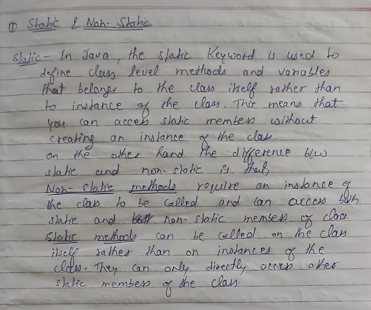 ① Static & Non-Static
Static - In Java, the static keyword is used to
define class level methods and variables
that belongs to the class itself rather than
to instance of the class. This means that
you can access static members without
creating an instance of the class
on the other hand the difference b/w
static and non-static is that,
Non-static methods require an instance of
the class to be called and can access both
static and non-static members of class
Static methods can be called on the class
itself rather than on instances of the
class. They can only directly access other
static members of the class.